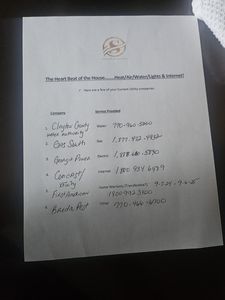 The Heart Beat of the House.......Heat/Air/Water/Lights & Internet!
Here are a few of your Current Utility companies
Company Service Provided
1. Clayton County Water 770-960-5200
water authority
2. Gas South Gas 1.877.472.4932
3. Georgia Power Electric 1.888.660.5890
4. Comcast/ Internet 1800 934 6489
Xfinity
Home Warranty (Transferrable)
5. First American 1800 992 3400
6. Pest Other 770-466-6700